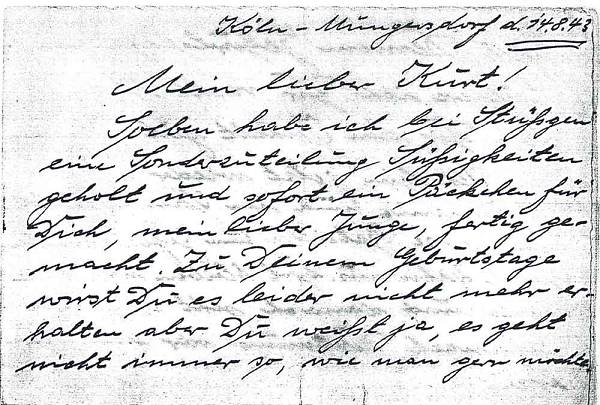 Köln-Müngersdorf d. 14.8.43
Mein lieber Kurt!
Soeben habe ich bei Stüßgen
eine Sonderzuteilung Süßigkeiten
geholt und sofort ein Päckchen für
Dich, mein lieber Junge, fertig ge-
macht. Zu Deinem Geburtstage
wirst Du es leider nicht mehr er-
halten aber Du weißt ja, es geht
nicht immer so, wie man gern möchte